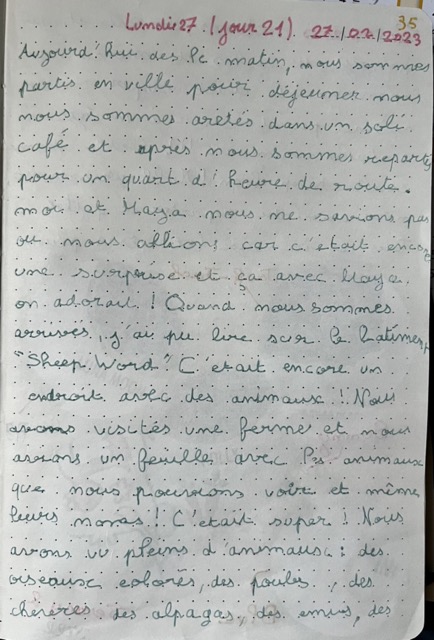 35
Lundi 27 (jour 21) 27/02/2023
Aujourd'hui des le matin, nous sommes
partis en ville pour déjeuner nous
nous sommes aretés dans un joli
café et après nous sommes repartis
pour un quart d'heure de route.
moi et Maya nous ne savions pas
ou nous allions car c'était encore
une surprise et ça avec Maya
on adorait ! Quand nous sommes
arrivés, j'ai pu lire sur le batiment
"Sheep Word" C'était encore un
endroit avec des animaux ! Nous
avons visités une ferme et nous
avions un feuille avec les animaux
que nous pouvions voir et même
leurs noms ! C'était super ! Nous
avons vu pleins d'animaux : des
oiseaux colorés, des poules, des
chèvres des alpagas, des emus, des